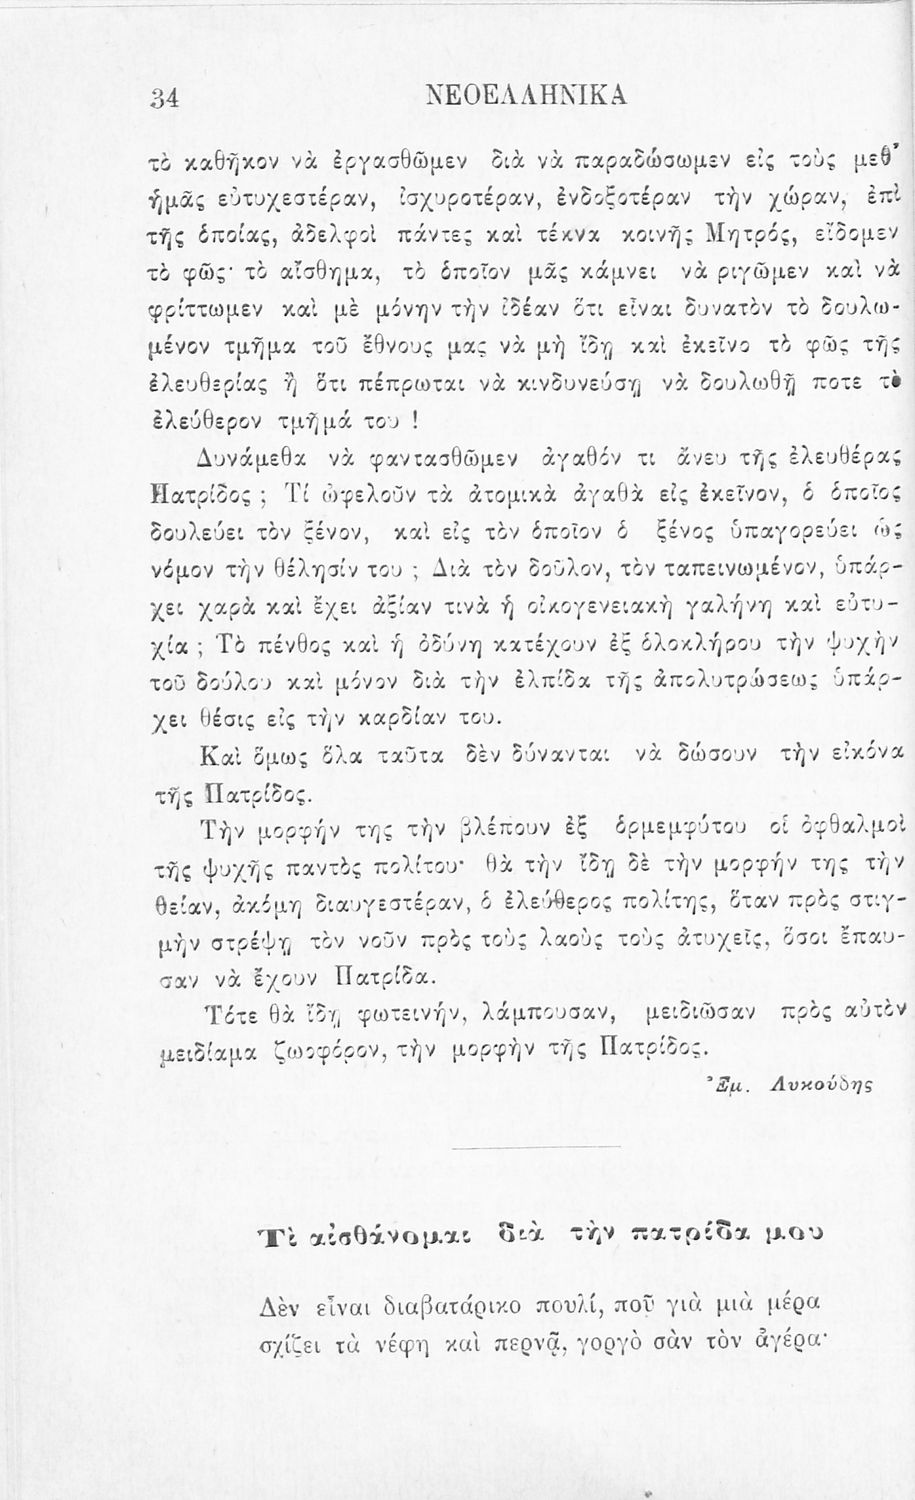 34 ΝΕΟΕΛΛΗΝΙΚΑ
τὸ καθῆκον νὰ ἐργασθῶμεν διὰ νὰ παραδώσωμεν εἰς τοὺς μεθ᾽
ἡμᾶς εὐτυχεστέραν, ἰσχυροτέραν, ἐνδοξοτέραν τὴν χώραν, ἐπὶ
τῆς ὁποίας, ἀδελφοὶ πάντες καὶ τέκνα κοινῆς Μητρός, εἴδομεν
τὸ φῶς· τὸ αἴσθημα, τὸ ὁποῖον μᾶς κάμνει νὰ ριγῶμεν καὶ νὰ
φρίττωμεν καὶ μὲ μόνην τὴν ἰδέαν ὅτι εἶναι δυνατὸν τὸ δουλω-
μένον τμῆμα τοῦ ἔθνους μας νὰ μὴ ἴδῃ καὶ ἐκεῖνο τὸ φῶς τῆς
ἐλευθερίας ἢ ὅτι πέπρωται νὰ κινδυνεύσῃ νὰ δουλωθῇ ποτε τὸ
ἐλεύθερον τμῆμά του !
Δυνάμεθα νὰ φαντασθῶμεν ἀγαθόν τι ἄνευ τῆς ἐλευθέρας
Πατρίδος ; Τί ὠφελοῦν τὰ ἀτομικὰ ἀγαθὰ εἰς ἐκεῖνον, ὁ ὁποῖος
δουλεύει τὸν ξένον, καὶ εἰς τὸν ὁποῖον ὁ ξένος ὑπαγορεύει ὡς
νόμον τὴν θέλησίν του ; Διὰ τὸν δοῦλον, τὸν ταπεινωμένον, ὑπάρ-
χει χαρὰ καὶ ἔχει ἀξίαν τινὰ ἡ οἰκογενειακὴ γαλήνη καὶ εὐτυ-
χία ; Τὸ πένθος καὶ ἡ ὀδύνη κατέχουν ἐξ ὁλοκλήρου τὴν ψυχὴν
τοῦ δούλου καὶ μόνον διὰ τὴν ἐλπίδα τῆς ἀπολυτρώσεως ὑπάρ-
χει θέσις εἰς τὴν καρδίαν του.
Καὶ ὅμως ὅλα ταῦτα δὲν δύνανται νὰ δώσουν τὴν εἰκόνα
τῆς Πατρίδος.
Τὴν μορφήν της τὴν βλέπουν ἐξ ὁρμεμφύτου οἱ ὀφθαλμοὶ
τῆς ψυχῆς παντὸς πολίτου· θὰ τὴν ἴδῃ δὲ τὴν μορφήν της τὴν
θείαν, ἀκόμη διαυγεστέραν, ὁ ἐλεύθερος πολίτης, ὅταν πρὸς στιγ-
μὴν στρέψῃ τὸν νοῦν πρὸς τοὺς λαοὺς τοὺς ἀτυχεῖς, ὅσοι ἔπαυ-
σαν νὰ ἔχουν Πατρίδα.
Τότε θὰ ἴδῃ φωτεινήν, λάμπουσαν, μειδιῶσαν πρὸς αὐτὸν
μειδίαμα ζωοφόρον, τὴν μορφὴν τῆς Πατρίδος.
Ἐμ. Λυκούδης
Τὶ αἰσθάνομαι διὰ τὴν πατρίδα μου
Δὲν εἶναι διαβατάρικο πουλί, ποῦ γιὰ μιὰ μέρα
σχίζει τὰ νέφη καὶ περνᾷ, γοργὸ σὰν τὸν ἀγέρα·